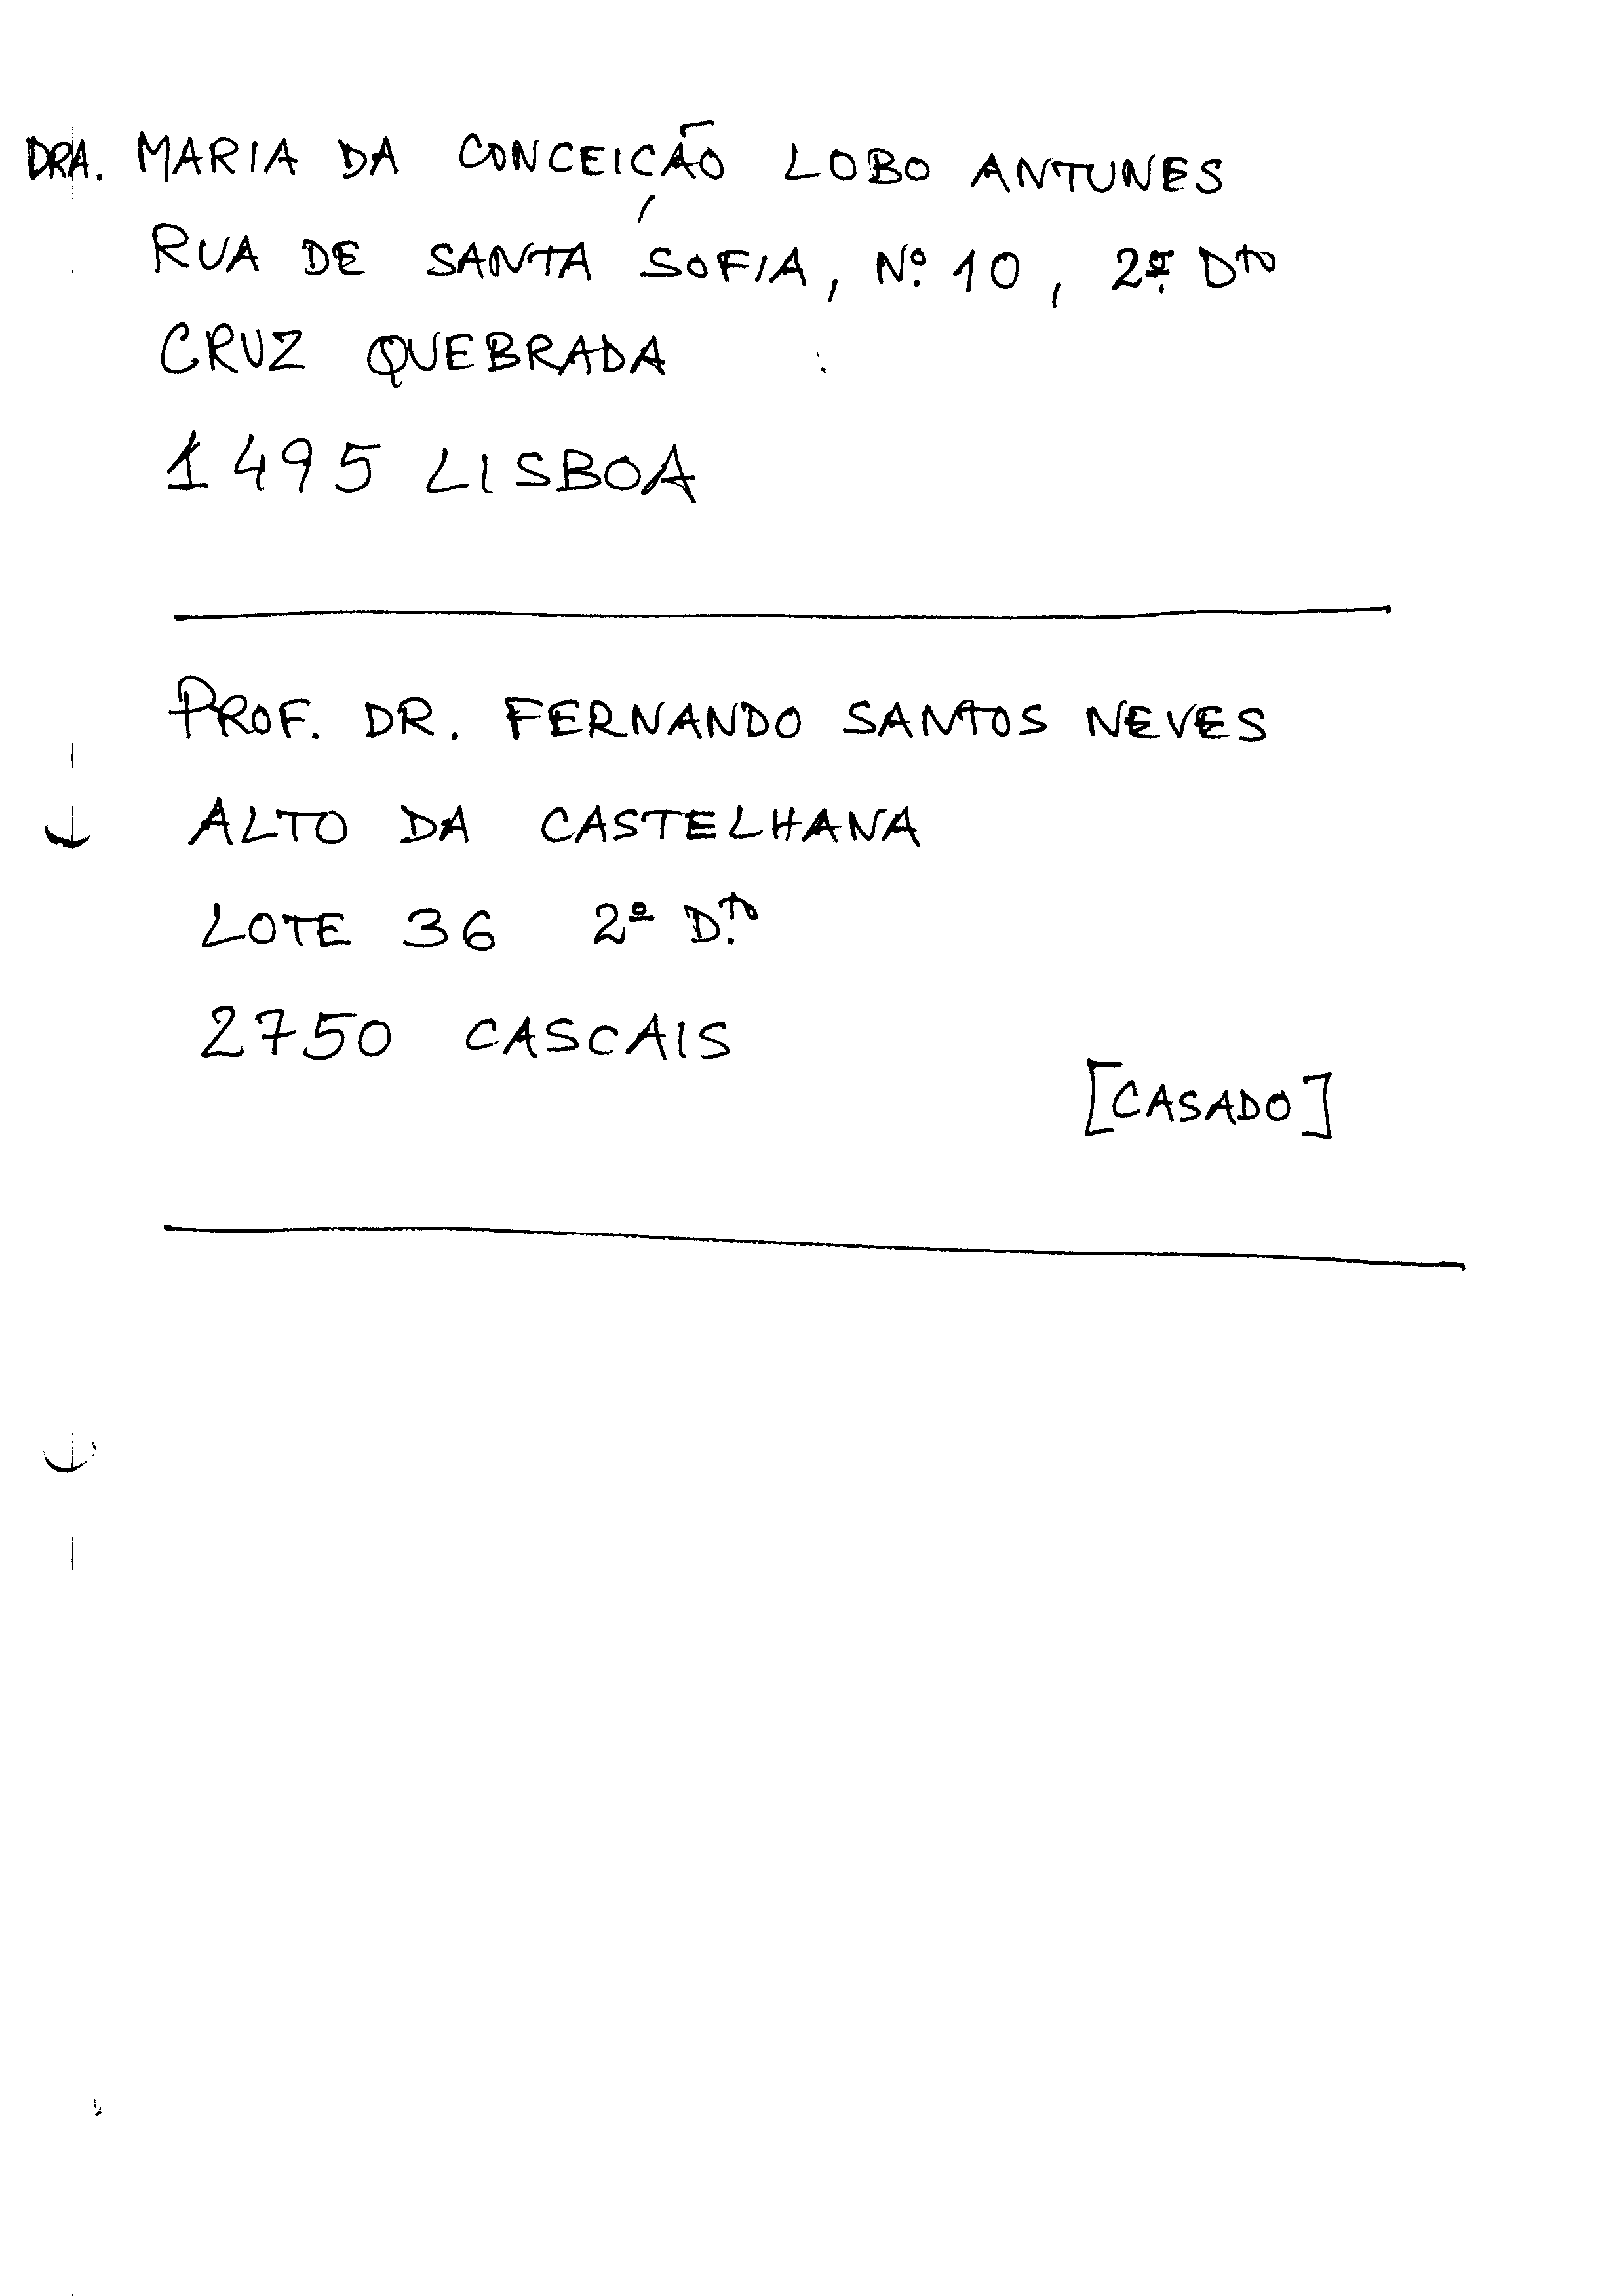 DRA. MARIA DA CONCEIÇÃO LOBO ANTUNES
RUA DE SANTA SOFIA, Nº. 10, 2º. Dto
CRUZ QUEBRADA
1495 LISBOA
PROF. DR. FERNANDO SANTOS NEVES
ALTO DA CASTELHANA
LOTE 36 2º D.to
2750 CASCAIS
[CASADO]